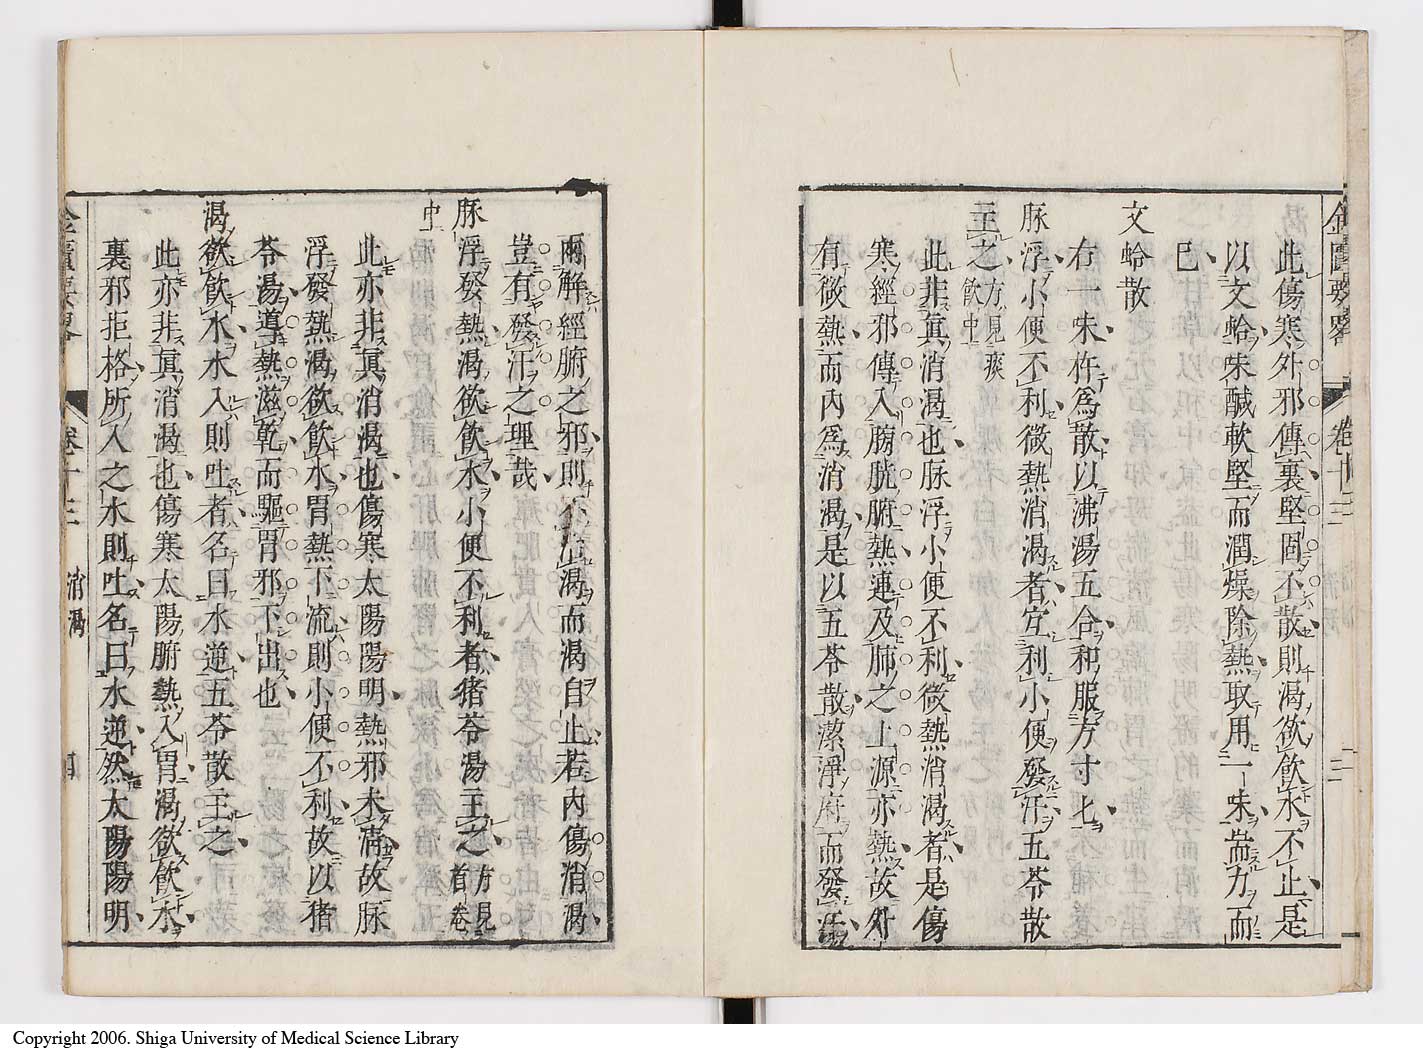 此傷寒外邪傳裏堅固不散則渴欲飲水不止是
以文蛤味醎軟堅而潤燥除熱取用一味耑力而
巳
文蛤散
右一味杵為散以沸湯五合和服方寸匕
脉浮小便不利微熱消渴者宜利小便發汗五苓散
主之方見痰飲中
此非眞消渴也脉浮小便不利微熱消渴者是傷
寒經邪傳入膀胱腑熱連及肺之上源亦熱故外
有微熱而內為消渴是以五苓散潔淨府而發汗
兩解經腑之邪則不治渴而渴自止若內傷消渴
豈有發汗之理哉
脉浮發熱渴欲飲水小便不利者猪苓湯主之方見首卷
中
此亦非眞消渴也傷寒太陽陽明熱邪未清故脉
浮發熱渴欲飲水胃熱下流則小便不利故以猪
苓湯導熱滋乾而驅胃邪下出也
渴欲飲水水入則吐者名曰水逆五苓散主之
此亦非眞消渴也傷寒太陽腑熱入胃渴欲飲水
裏邪拒格所入之水則吐名曰水逆然太陽陽明
卷十三 消渴 四
Copyright 2006. Shiga University of Medical Science Library